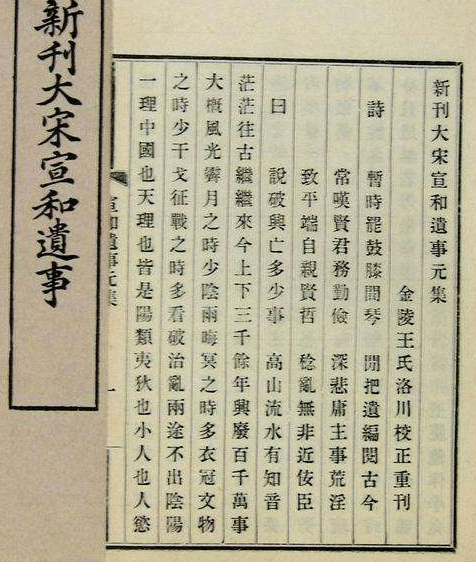 新刊大宋宣和遺事元集
金陵王氏洛川校正重刊
詩 暫時罷鼓膝間琴 閒把遺編閱古今
常嘆賢君務勤儉 深悲庸主事荒淫
致平端自親賢哲 稔亂無非近佞臣
曰 說破興亡多少事 高山流水有知音
茫茫往古繼繼來今上下三千餘年興廢百千萬事
大槪風光霽月之時少陰雨晦冥之時多衣冠文物
之時少干戈征戰之時多看破治亂兩途不出陰陽
一理中國也天理也皆是陽類夷狄也小人也人慾
宣和遺事元集 一
新刊大宋宣和遺事